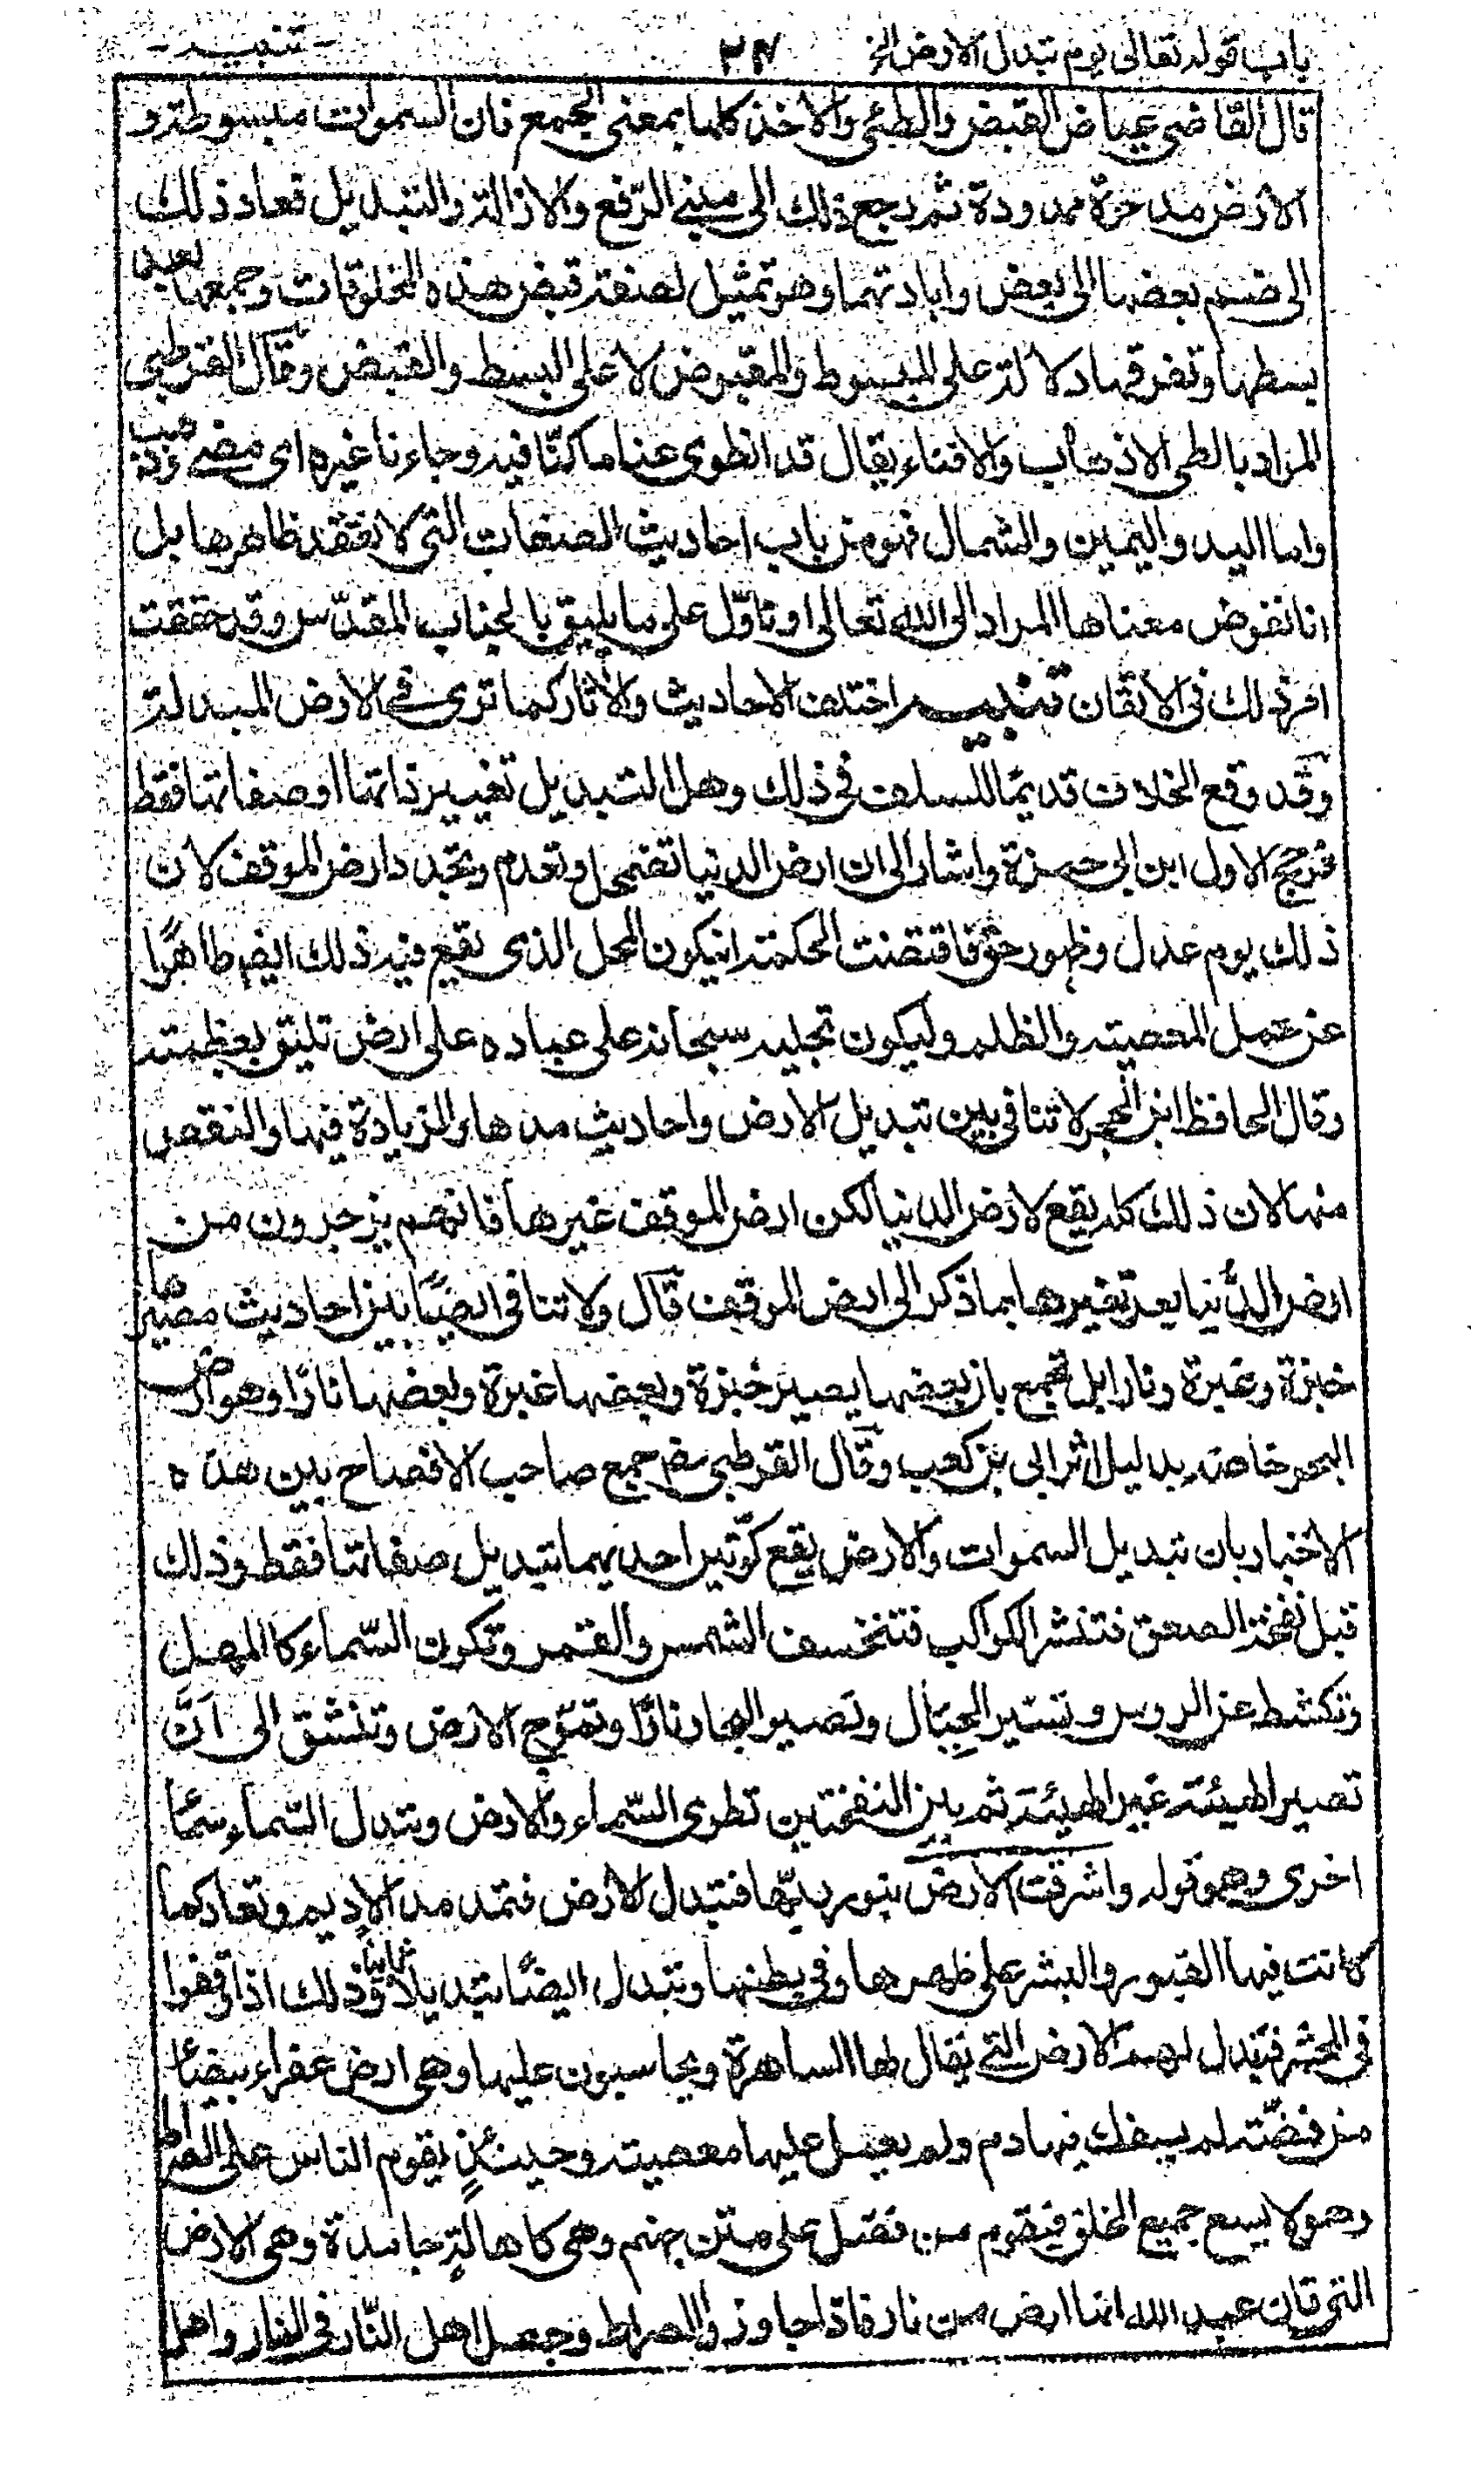 باب قوله تعالى يوم تبدل الارض الخ ٢٤ تنبيه
قال القاضى عياض القبض والطئى والاخذ كلها بمعنى الجمع فان السموات مبسوطة و
الارض مدحوة ممدودة ثم رجع ذلك الى معنى الرفع والازالة والتبديل فعاد ذلك
الى ضم بعضها الى بعض وابادتهما وهو تمثيل لصفة قبض هذه المخلوقات وجمعها بعد
بسطها وتفرقها دلالة على المبسوط والمقبوض لا على البسط والقبض وقال القرطبى
المراد بالطى الاذهاب والافناء يقال قد انطوى عنا ما كنّا فيه وجاءنا غيره اى مضى وذهب
واما اليد واليمين والشمال فهو من باب احاديث الصفات التى لا نعتقد ظاهرها بل
انا نفوض معناها المراد الى الله تعالى او ناوّل على ما يليق بالجناب المقدّس وقد حققت
امر ذلك فى الاتقان تنبيه اختلف الاحاديث والآثار كما ترى فى الارض المبدلة
وقد وقع الخلاف قديمًا للسلف فى ذلك وهل التبديل تغيير ذاتها او صفاتها فقط
فرجح الاول ابن ابى حمزة واشار الى ان ارض الدنيا تضمحل وتعدم وتجدد ارض الموقف لان
ذلك يوم عدل وظهور حق فاقتضت الحكمة ان يكون المحل الذى يقع فيه ذلك ايضا طاهرًا
عن عمل المعصية والظلم وليكون تجليه سبحانه على عباده على ارض تليق بعظمته
وقال الحافظ ابن الحجر لا تنافى بين تبديل الارض واحاديث مدها والزيادة فيها والنقص
منها لان ذلك كله يقع لارض الدنيا لكن ارض الموقف غيرها فانهم يزجرون من
ارض الدّنيا بعد تغيرها بما ذكر الى ارض الموقف قال ولا تنافى ايضًا بين احاديث مصيرها
خبزة وغبرة ونارا بل تجمع بان بعضها يصير خبزة وبعضها غبرة وبعضها نارًا وهو ارض
البحر خاصة بدليل اثر ابى بن كعب وقال القرطبى جمع صاحب الافصاح بين هذه
الاخبار بان تبديل السموات والارض يقع كرّتين احديهما تبديل صفاتها فقط وذلك
قبل نفخة الصعق فتنثر الكواكب فتنخسف الشمس والقمر وتكون السّماء كالمهل
وتكشط عن الروس وتسير الجبال وتصير البحار نارًا وتموّج الارض وتنشق الى اَنَّ
تصير الهيئة غير الهيئة ثم بين النفختين تطوى السّماء والارض وتبدل السّماء سمًا
اخرى وهو قوله واشرقت الارض بنور ربّها فتبدل الارض فتمد مد الاديم وتعاد كما
كانت فيها القبور والبشر على ظهرها وفى بطنها وتبدل ايضًا تبديلًا ثانيًا وذلك اذا وقفوا
فى المحشر فتبدل لهم الارض التى يقال لها الساهرة ويحاسبون عليها وهى ارض عفراء بيضاء
من فضّة لم يسفك فيها دم ولم يعمل عليها معصية وحينئذٍ يقوم الناس على الصراط
وهو لا يسع جميع الخلق فيقوم من فضل على متن جهنم وهى كاهالةٍ جامدة وهى الارض
التى قال عبد الله انها ارض من نار فاذا جاوزوا الصراط وجعل اهل النّار فى النار واهل